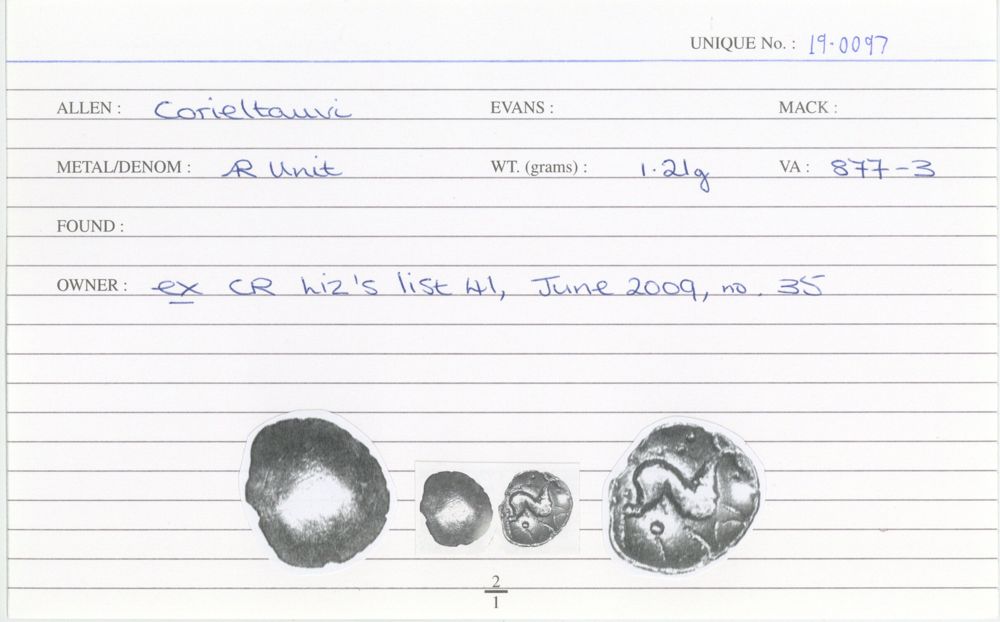 UNIQUE No. : 19.0097
ALLEN : Corieltauvi EVANS : MACK :
METAL/DENOM : AR Unit WT. (grams) : 1.21g VA : 877-3
FOUND :
OWNER : ex CR Liz's list 41, June 2009, no. 35
2
1